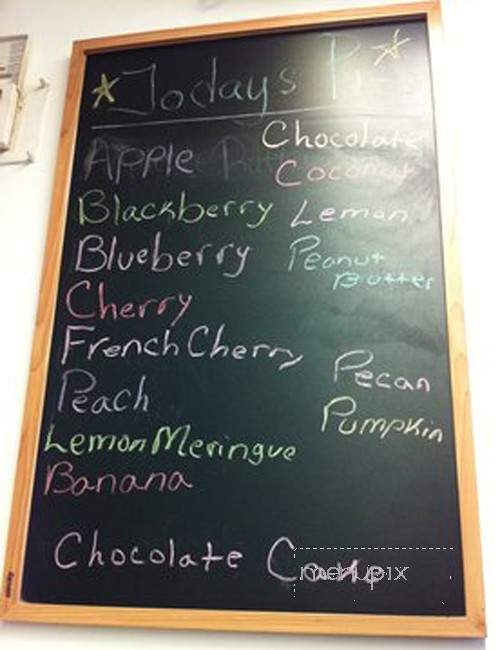 Todays Pi
Apple
Chocolate
Coconut
Blackberry
Lemon
Blueberry
Peanut
Butter
Cherry
French Cherry
Pecan
Peach
Pumpkin
Lemon Meringue
Banana
Chocolate
menupix